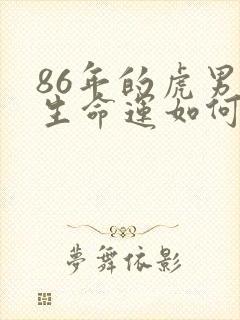 86年的虎男
生命运如何
夢舞依影